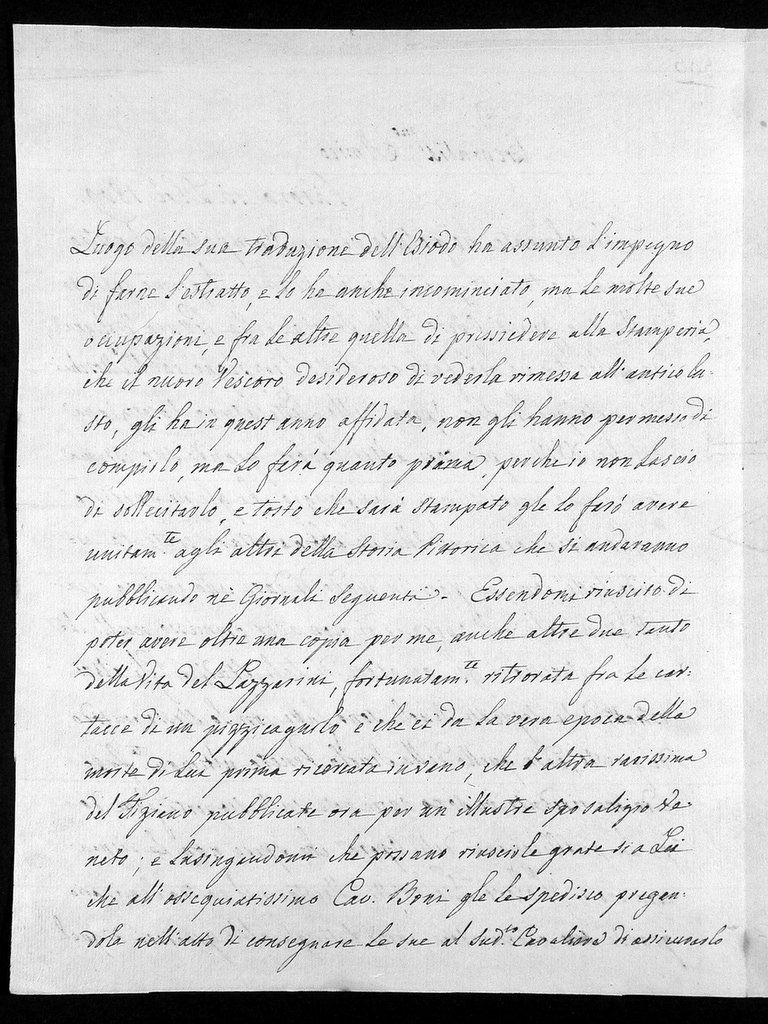 Luogo della sua traduzione dell'Esiodo ha assunto l'impegno
di farne l'estratto, e lo ha anche incominciato, ma le molte sue
occupazioni, e fra le altre quella di pressiedere alla Stamperia,
che il nuovo Vescovo desideroso di vederla rimessa all'antico lu-
stro, gli ha in quest'anno affidata, non gli hanno permesso di
compirlo, ma lo farà quanto prima, perche io non lascio
di sollecitarlo, e tosto che sarà stampato gle lo farò avere
unitam.te agli altri della Storia Pittorica che si andaranno
pubblicando ne' Giornali seguenti. Essendomi riuscito di
poter avere oltre una copia per me, anche altre due tanto
della Vita del Lazzarini, fortunatam.te ritrovata fra le car-
tacce di un pizzicagnolo e che ci da la vera epoca della
morte di Lui prima ricercata invano, che l'altra rarissima
del Tiziano pubblicate ora per un illustre sposalizio Ve-
neto; e lusingandomi che possano riuscire grate sì a Lei
che all'ossequiatissimo Cav. Boni gle le spedisco pregan-
dola nell'atto di consegnare le sue al sud.to Cavaliere di assicurarlo